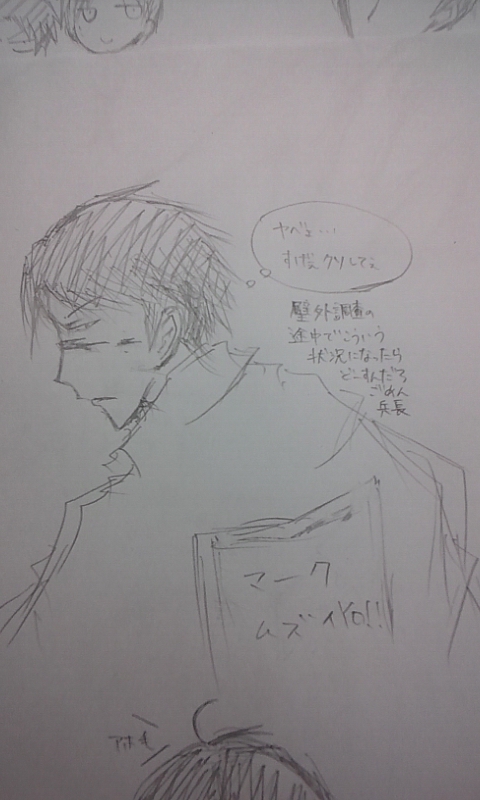 ヤベェ...
すげぇクソしてぇ
壁外調査の
途中でこういう
状況になったら
どーすんだろ
ごめん
兵長
マーク
ムズイYO!!
アホ毛